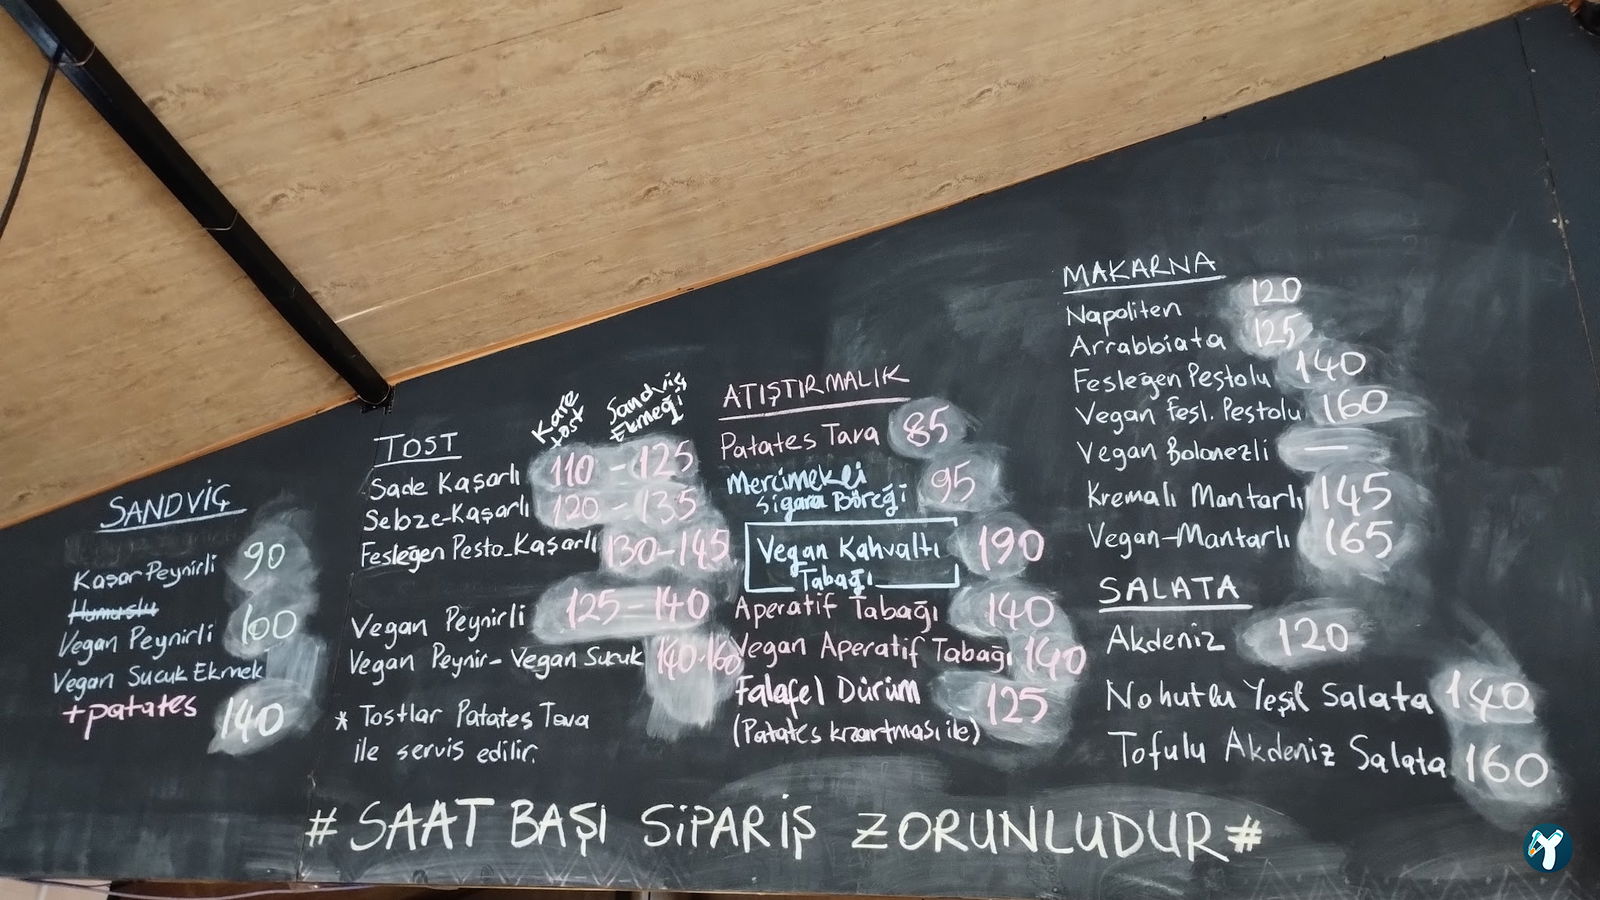 SANDVİÇ
Kaşar Peynirli 90
Humuslu
Vegan Peynirli 100
Vegan Sucuk Ekmek
+patates 140
TOST
Kare tost
Sandviç Ekmeği
Sade Kaşarlı 110 - 125
Sebze-Kaşarlı 120 - 135
Fesleğen Pesto-Kaşarlı 130-145
Vegan Peynirli 125-140
Vegan Peynir-Vegan Sucuk 140-160
* Tostlar Patates Tava
ile servis edilir.
ATIŞTIRMALIK
Patates Tava 85
Mercimekli
Sigara Böreği 95
Vegan Kahvaltı
Tabağı 190
Aperatif Tabağı 140
Vegan Aperatif Tabağı 140
Falafel Dürüm 125
(Patates kızartması ile)
MAKARNA
Napoliten 120
Arrabbiata 125
Fesleğen Pestolu 140
Vegan Fesl. Pestolu 160
Vegan Bolonezli —
Kremalı Mantarlı 145
Vegan-Mantarlı 165
SALATA
Akdeniz 120
Nohutlu Yeşil Salata 140
Tofulu Akdeniz Salata 160
# SAAT BAŞI SİPARİŞ ZORUNLUDUR #